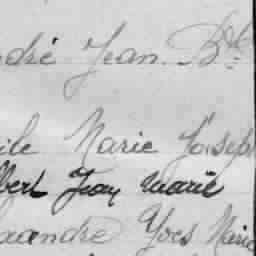 dré Jean Bte
ile Marie Joseph
bert Jean Marie
xandre Yves Marie